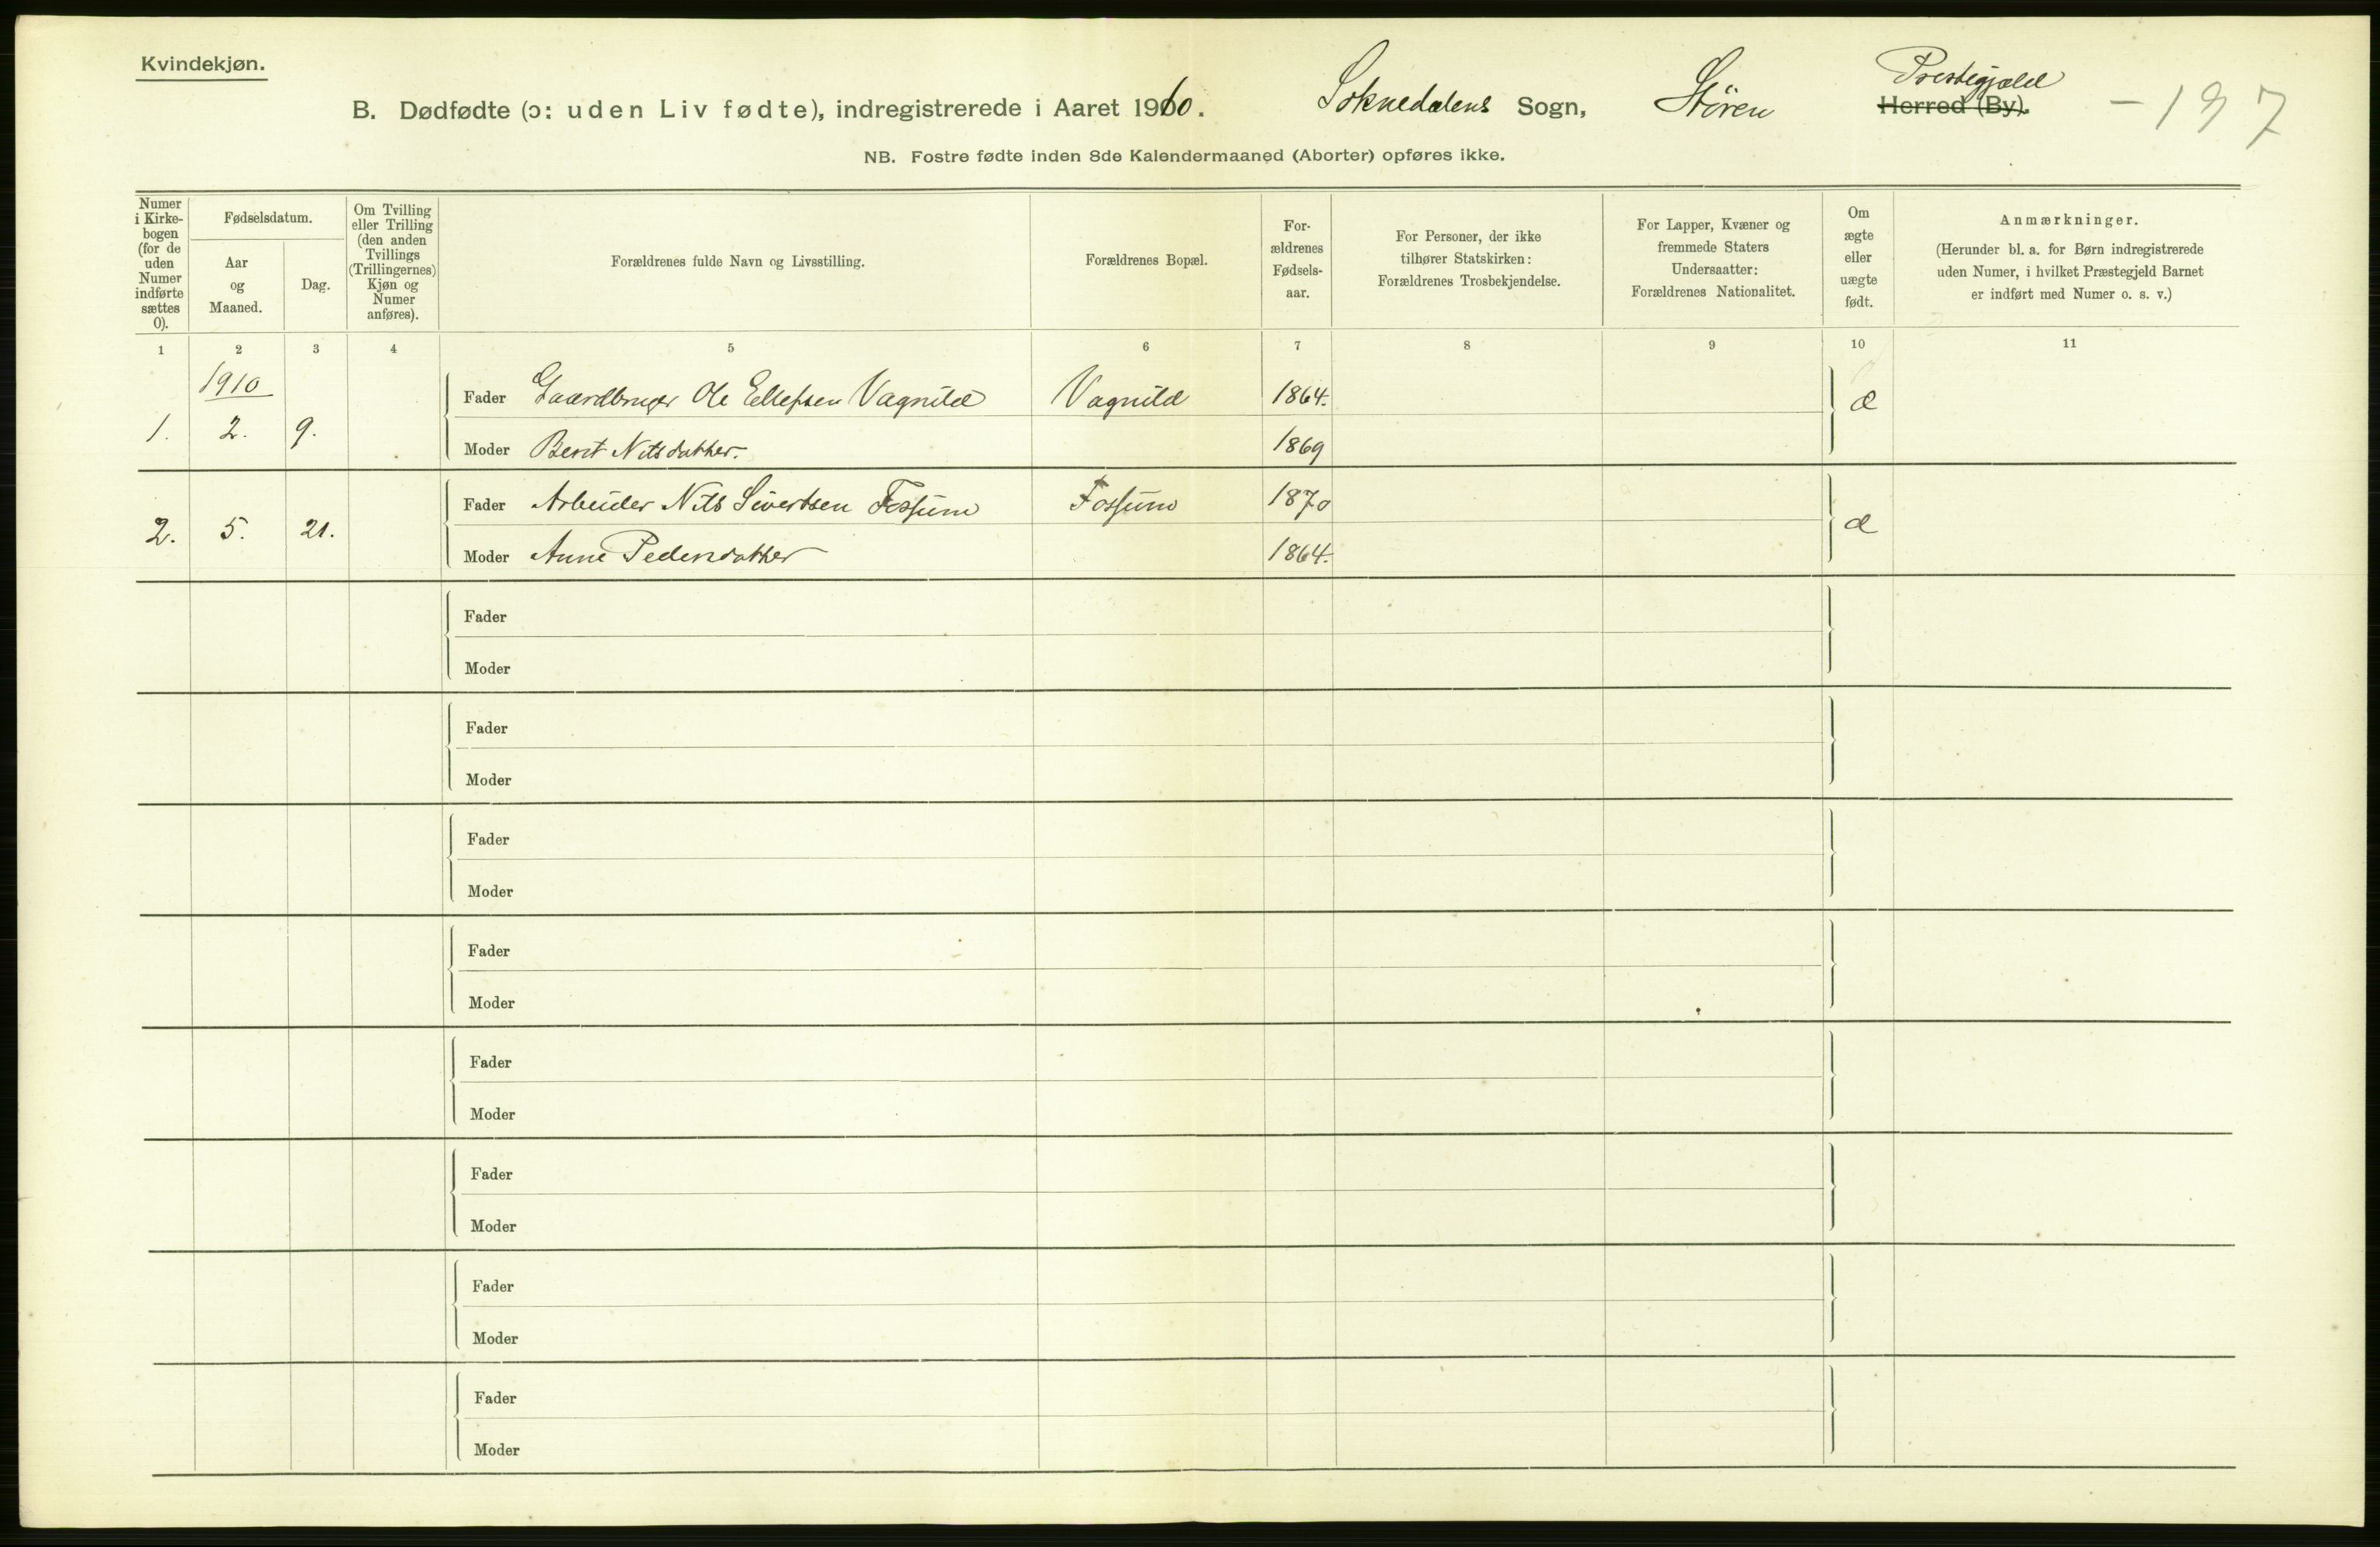 Kvindekjøn.
B. Dødfødte (ɔ: uden Liv fødte), indregistrerede i Aaret 1910. Soknedalens Sogn, Støren Prestegjæld Herred (By). - 197
NB. Fostre fødte inden 8de Kalendermaaned (Aborter) opføres ikke.
Numer i Kirkebogen (for de uden Numer indførte sættes 0).
Fødselsdatum.
Aar og Maaned.
Dag.
Om Tvilling eller Trilling (den anden Tvillings (Trillingernes) Kjøn og Numer anføres).
Forældrenes fulde Navn og Livsstilling.
Forældrenes Bopæl.
For-ældrenes Fødsels-aar.
For Personer, der ikke tilhører Statskirken: Forældrenes Trosbekjendelse.
For Lapper, Kvæner og fremmede Staters Undersaatter: Forældrenes Nationalitet.
Om ægte eller uægte født.
Anmærkninger.
(Herunder bl. a. for Børn indregistrerede uden Numer, i hvilket Præstegjeld Barnet er indført med Numer o. s. v.)
1 2 3 4 5 6 7 8 9 10 11
1910
Fader Gaardbruger Ole Ellefsen Vagnild Vagnild 1864. æ
1. 2. 9.
Moder Berit Nilsdatter. 1869
Fader Arbeider Nils Sivertsen Fossum Fossum 1870 æ
2. 5. 21.
Moder Anne Pedersdatter 1864.
Fader
Moder
Fader
Moder
Fader
Moder
Fader
Moder
Fader
Moder
Fader
Moder
Fader
Moder
Fader
Moder